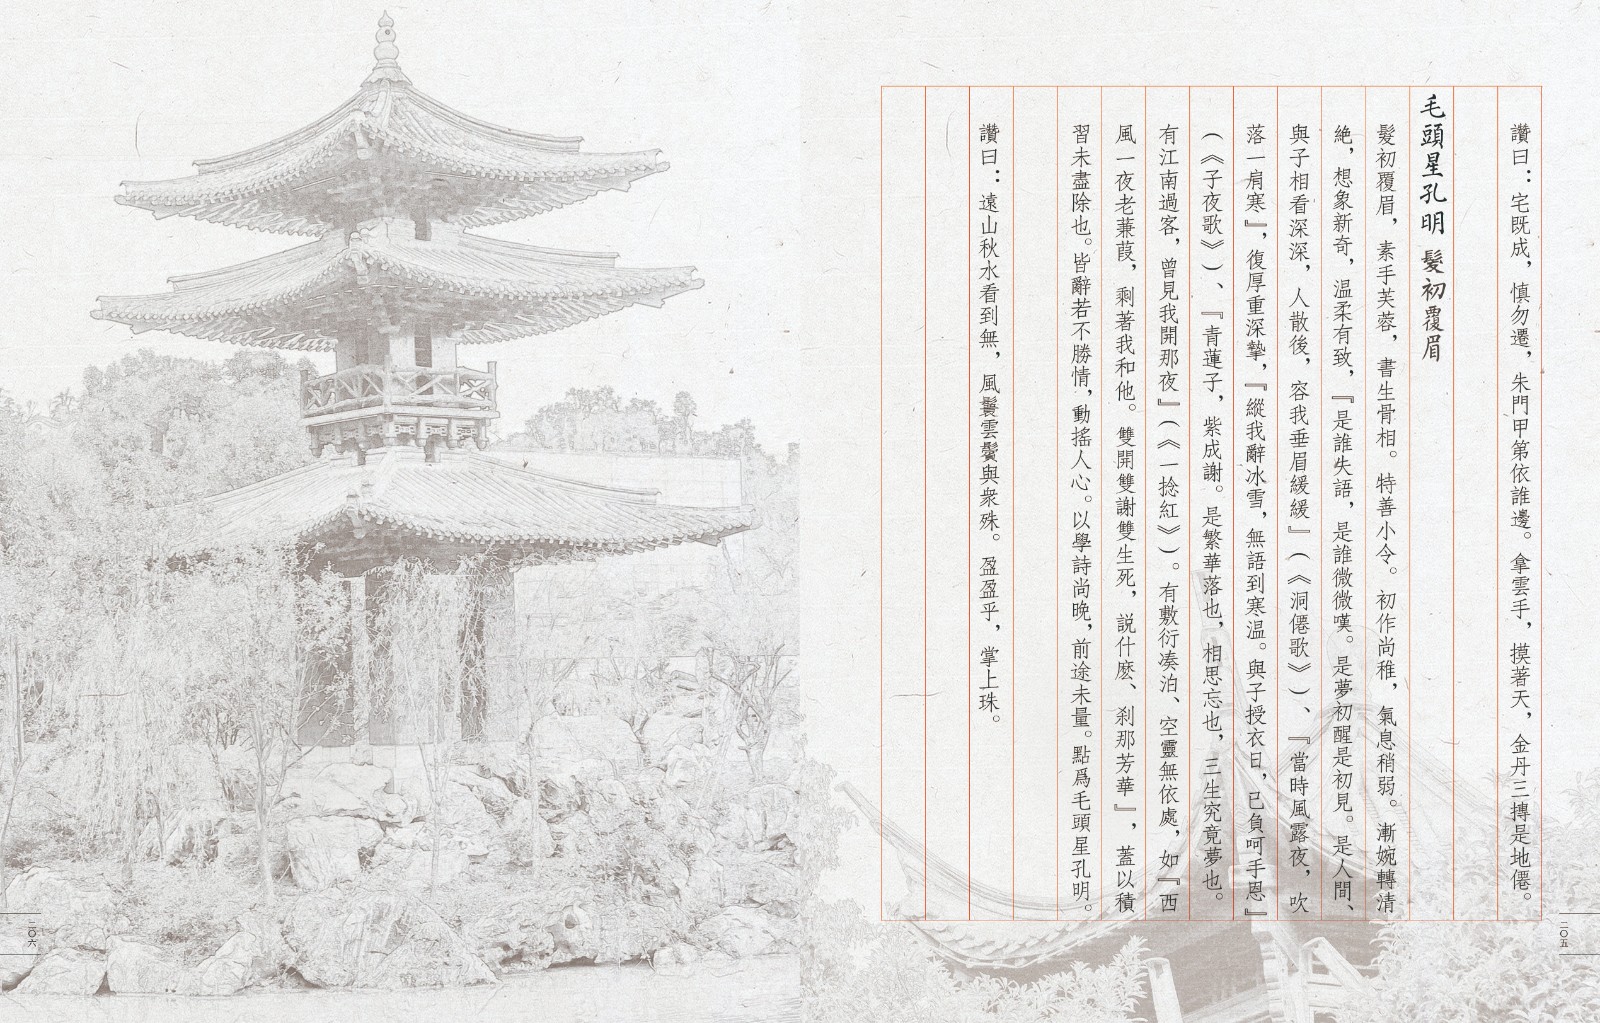 讚曰：宅既成，慎勿遷，朱門甲第依誰邊。拿雲手，摸著天，金丹三摶是地僊。
毛頭星孔明 髮初覆眉
髮初覆眉，素手芙蓉，書生骨相。特善小令。初作尚稚，氣息稍弱。漸婉轉清
絶，想象新奇，温柔有致，『是誰失語，是誰微微嘆。是夢初醒是初見。是人間、
與子相看深深，人散後，容我垂眉緩緩』（《洞僊歌》）、『當時風露夜，吹
落一肩寒』，復厚重深摯，『縱我辭冰雪，無語到寒温。與子授衣日，已負呵手恩』
（《子夜歌》）、『青蓮子，紫成謝。是繁華落也，相思忘也，三生究竟夢也。
有江南過客，曾見我開那夜』（《一捻紅》）。有敷衍凑泊、空靈無依處，如『西
風一夜老蒹葭，剩著我和他。雙開雙謝雙生死，説什麽、刹那芳華』，蓋以積
習未盡除也。皆辭若不勝情，動摇人心。以學詩尚晚，前途未量。點爲毛頭星孔明。
讚曰：遠山秋水看到無，風鬟雲鬢與衆殊。盈盈乎，掌上珠。
二〇五
二〇六